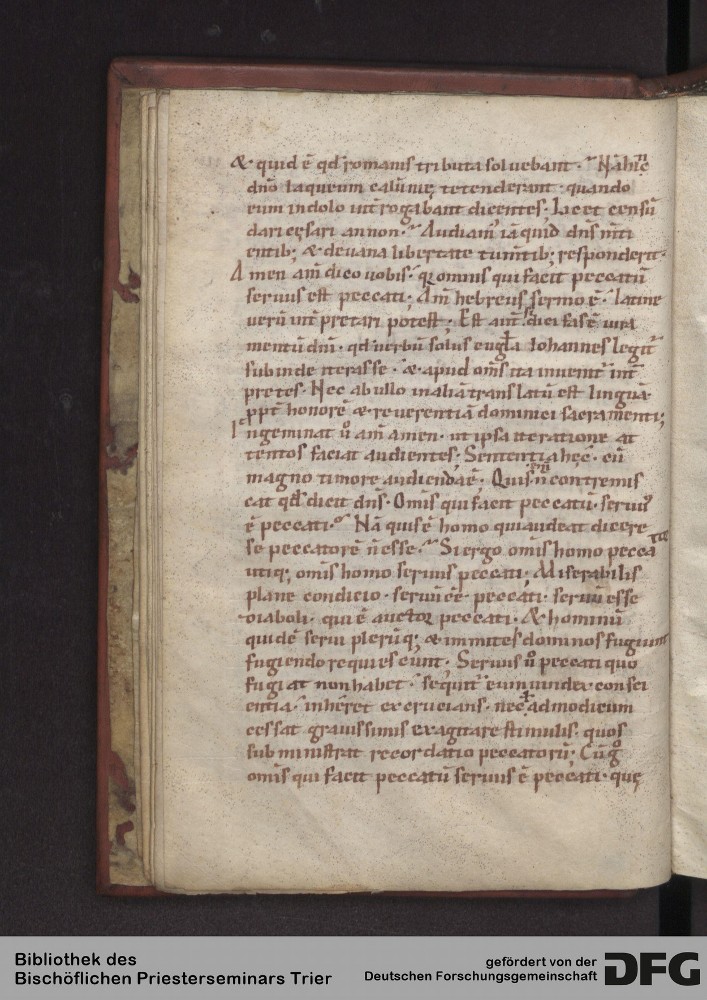 & quid ē qđ romanis tributa soluebant. Nā hęc
dn̄o laqueum calūnię tetenderant. quando
eum in dolo int̄rogabant dicentes. Licet censū
dari cęsari an non. Audiam' iā quid dn̄s m̄ti
entib; & de uana libertate tum̄tib; responderit.
Amen am̄ dico uobis. qr omnis qui facit peccatū
seruus est peccati; Am̄ hebreus sermo ē. latine
uerū int̄pretari potest; Est aut̄ dici fas ē iura
mentū dn̄i. qđ uerbū solus eugl̄a Iohannes legit'
subinde iterasse. & apud om̄s ita inuenit' int̄
pretes. Nec ab ullo in aliā translatū est linguā.
ꝓpt̄ honorē & reuerentiā dominici sacramenti;
Ingeminat ů am̄ amen. ut ipsa iteratione at
tentos faciat audientes; Sententia hęc. cū
magno timore audienda ē; Quis n̄ contremis
cat qđ dicit dn̄s. Om̄is qui facit peccatū. seruus
ē peccati. Nā quis ē homo qui audeat dicere
se peccatorē n̄ esse. Si ergo om̄is homo peccator
utiq; om̄is homo seruus peccati; Miserabilis
plane condicio. seruū ēē peccati. seruū esse
diaboli. qui ē auctor peccati. & hominū
quidē serui plerūq; & inmites dominos fugiunt
fugiendo requiescunt. Seruus ů peccati quo
fugiat non habet. sequit' eum uindex consci
entia. inhęret excrucians. nec ad modicum
cessat grauissimis exagitare stimulis. quos
subministrat recordatio peccatorū; Cū g̊
om̄is qui facit peccatū seruus ē peccati. quę
Bibliothek des
Bischöflichen Priesterseminars Trier
gefördert von der
Deutschen Forschungsgemeinschaft
DFG